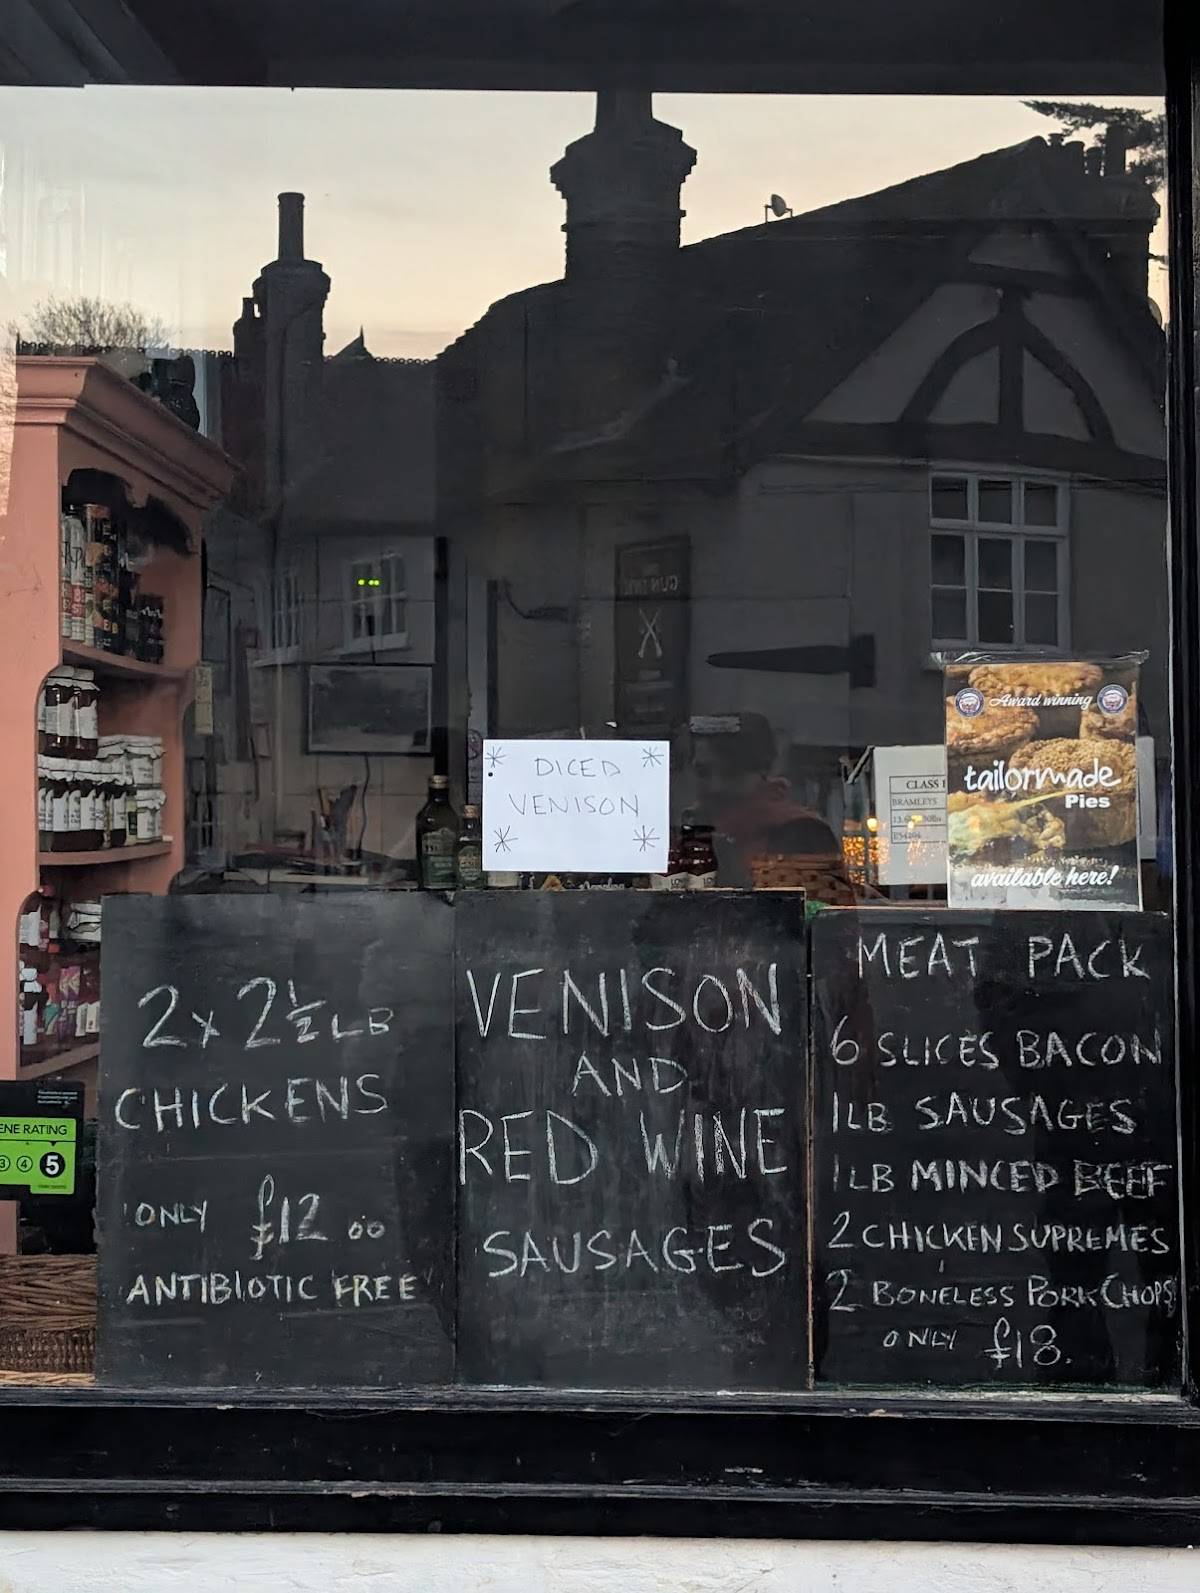 DICED
VENISON
Award winning
tailormade
Pies
available here!
CLASS I
BRAMLEYS
ENE RATING
3 4 5
2 x 2 1/2 LB
CHICKENS
ONLY £12.00
ANTIBIOTIC FREE
VENISON
AND
RED WINE
SAUSAGES
MEAT PACK
6 SLICES BACON
1LB SAUSAGES
1LB MINCED BEEF
2 CHICKEN SUPREMES
2 BONELESS PORK CHOPS
ONLY £18.